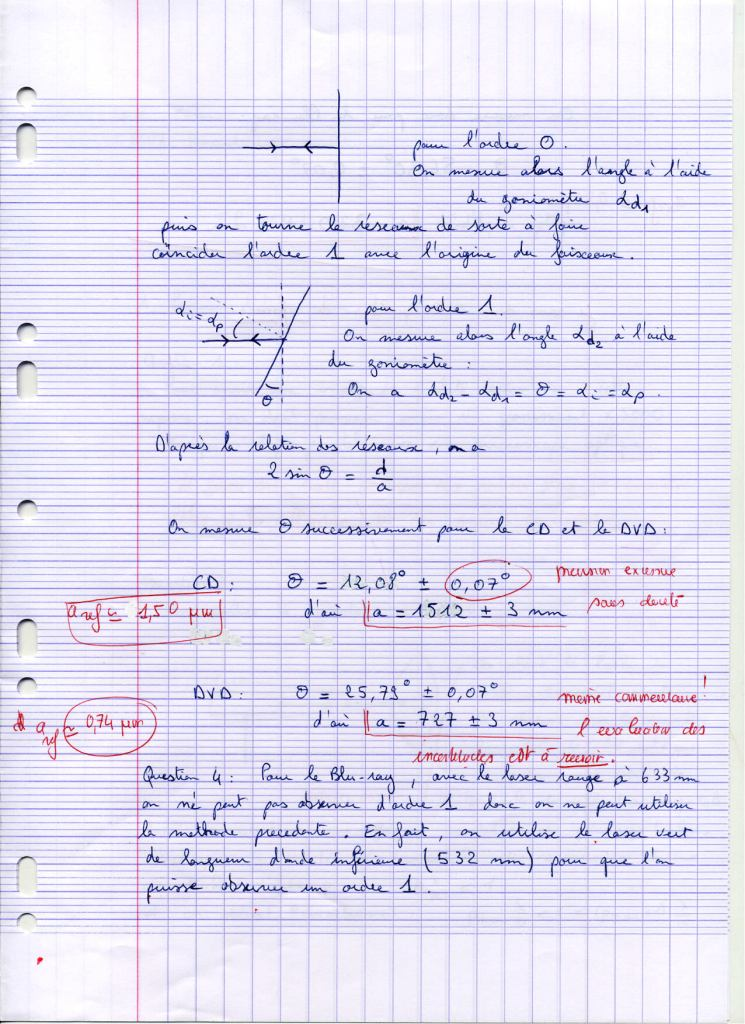 pour l'ordre 0.
On mesure alors l'angle à l'aide
du goniomètre αd1
puis on tourne le réseau de sorte à faire
coïncider l'ordre 1 avec l'origine du faisceaux.
αi = αp
θ
pour l'ordre 1.
On mesure alors l'angle αd2 à l'aide
du goniomètre :
On a αd2 - αd1 = θ = αi = αp.
D'après la relation des réseaux, on a
2 sin θ = d/a
On mesure θ successivement pour le CD et le DVD :
CD : θ = 12,08° ± 0,07°
précision excessive
sans doute
a ref ≃ 1,50 µm
d'où a = 1512 ± 3 nm
DVD : θ = 25,79° ± 0,07°
même commentaire !
a ref ≃ 0,74 µm
d'où a = 727 ± 3 nm
l'evaluation des
incertitudes est à revoir.
Question 4 : Pour le Blu-ray, avec le laser rouge à 633 nm
on ne peut pas observer d'ordre 1 donc on ne peut utiliser
la methode precedente. En fait, on utilise le laser vert
de longueur d'onde inférieure (532 nm) pour que l'on
puisse observer un ordre 1.